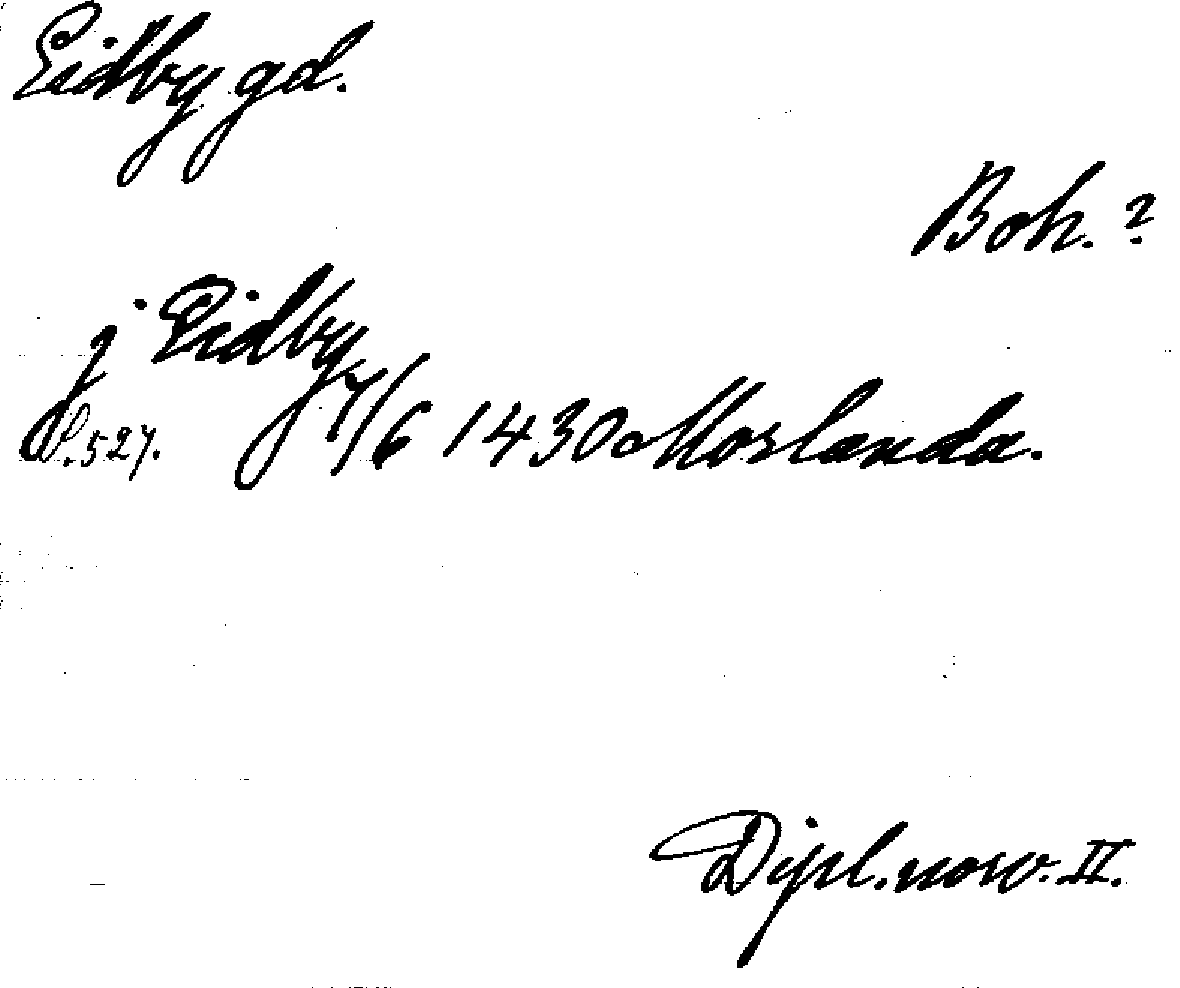 Eidby gd.
Boh. ?
j Eidby
S. 527. 7/6 1430 Morlanda.
Dipl. norv. II.